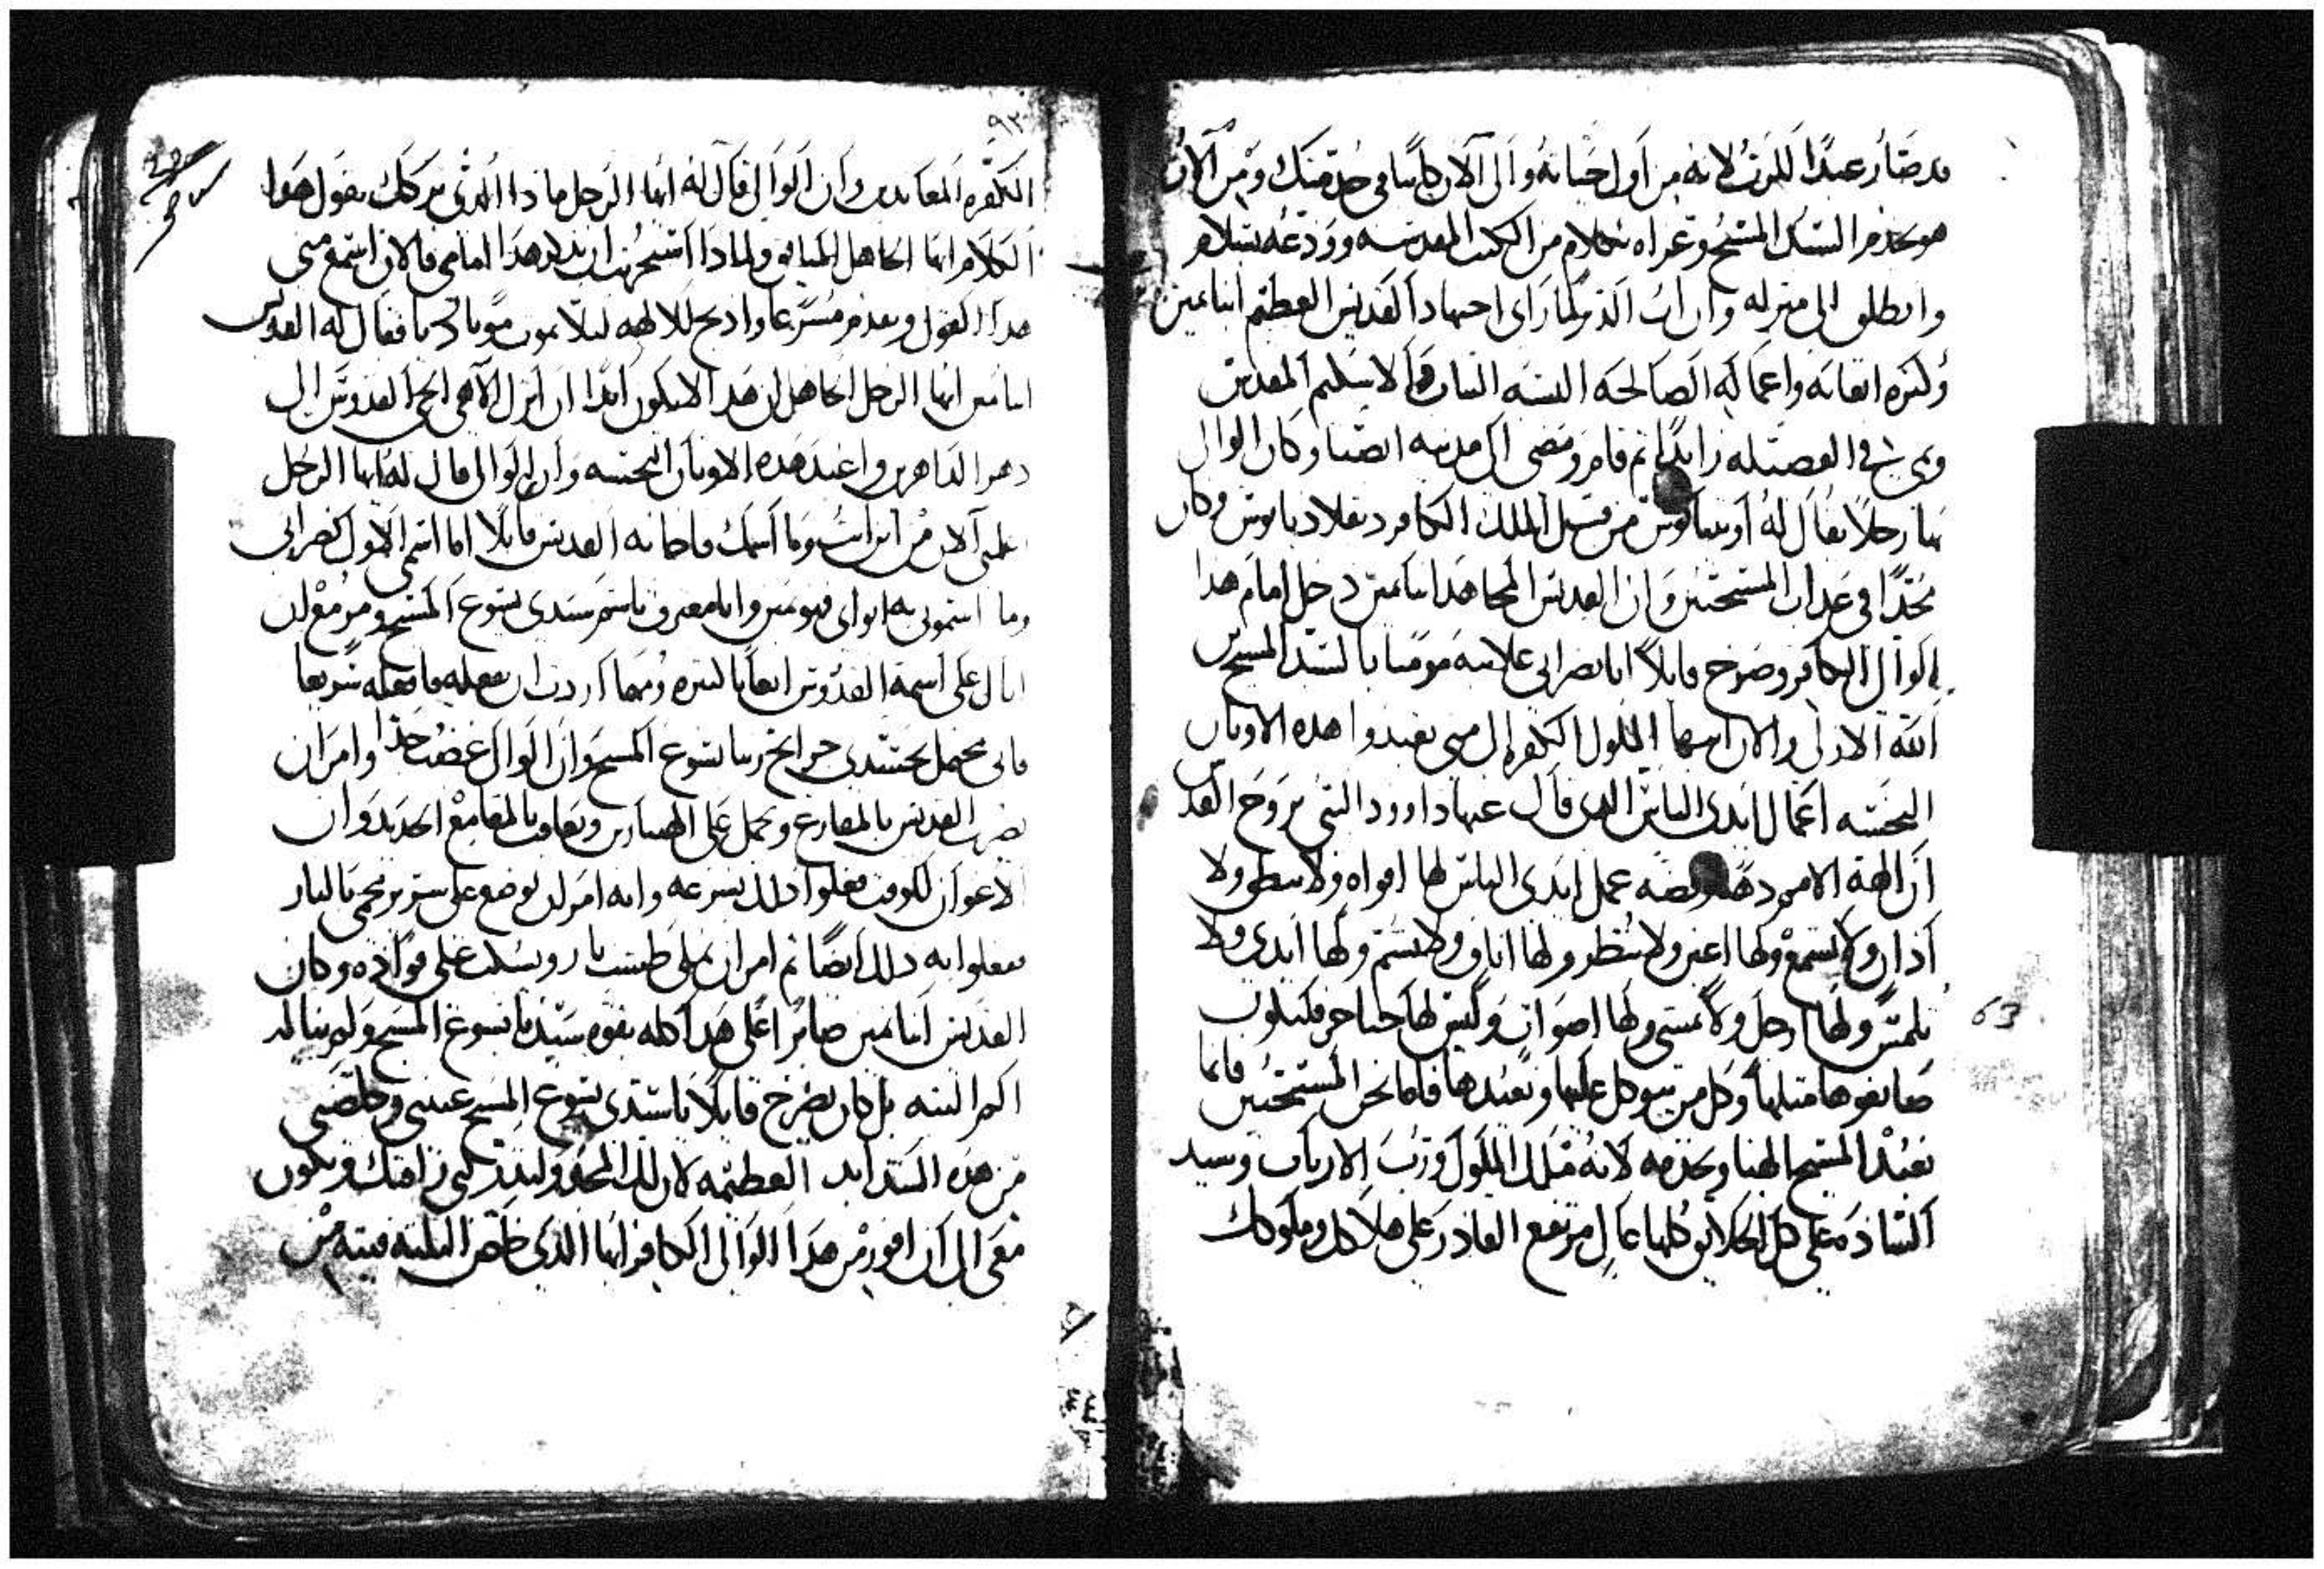 قد صار عبدًا للرب لانه من اول حياته والى الان كاينا في خدمتك ومن الان
هو يخدم السيد المسيح وعزاه بكلام من الكتب المقدسه وودعه بسلام
وانطلق الى منزله وان اب الدير لما راى اجتهاد القديس العظيم ابنامين
وكثره اتعابه واعماله الصالحه
في الفضيله زايدًا ثم قام ومضى الى مدينه انصنا وكان الوالي
بها رجلاً يقال له من قبل الملك الكافر دقلاديانوس وكان
مجدًا في عذاب المسيحيين وان القديس المجاهد ابنامين دخل امام هذا
الوالي الكافر وصرخ قايلاً انا نصراني علانيه مومنا بالسيد المسيح
الله الازلي والان ايها الملوك الكفره الى متى تعبدوا هذه الاوثان
النجسه اعمال ايدي الناس الذي قال عنها داوود النبي بروح القدس
ان الهة الامم ذهب وفضه عمل ايدي الناس لها افواه ولا تنطق ولا
اذان ولا تسمع ولها اعين ولا تنظر ولها اناف ولا تشتم ولها ايدي ولا
تلمس ولها ارجل ولا تمشي ولها اصوات وليس لها حناجر فيكون
صانعوها مثلها وكل من يتوكل عليها ويعبدها فاما نحن المسيحيين فانما
نعبد المسيح الهنا ونخدمه لانه ملك الملوك ورب الارباب وسيد
الساده على كل الخلايق كلها عالي مرتفع القادر على هلاكك وملوكك
63
٩٣
الكفره المعاندين وان الوالي قال له ايها الرجل ماذا الذي حركك بقول هذا
الكلام ايها الجاهل ولماذا ان تذكر هذا امامي فالان استمع مني
هذا القول وتقدم مسرعا واذبح للالهه ليلا تموت موتا رديا فقال له القديس
ابنامين ايها الرجل الجاهل ان هذا لا يكون ابدًا ان اترك الاهي الحي القدوس الى
دهر الداهرين واعبد هذه الاوثان النجسه وان الوالي قال له ايها الرجل
اعلمني الان من اين انت وما اسمك فاجابه القديس قايلاً اما اسمي الاول نصراني
وما اسموني به ابواي فهو ابنامين وانا معترف باسم سيدي يسوع المسيح ومزمع ان
انال على اسمه القدوس اتعابا كثيره ومهما اردت ان تفعله فافعله سريعا
فاني محتمل بجسدي جراح ربنا يسوع المسيح وان الوالي غضب جدا وامر ان
يضرب القديس بالمقارع ويحمل على الهنبازين ويعاقب بالمقامع الحديد وان
الاعوان للوقت فعلوا ذلك بسرعه وانه امر ان يوضع على سرير محمي بالنار
ففعلوا به ذلك ايضًا ثم امر ان يملى طست نار ويسكب على فواده وكان
القديس ابنامين صابرًا على هذا كله بقوه سيدنا يسوع المسيح ولم يناله
الم البته بل كان يصرخ قايلاً يا سيدي يسوع المسيح عيني وخلصني
من هذه الشدايد العظيمه لان لك المجد ولتدركني رافتك وتكون
معي الى ان افوز من هذا الوالي الكافر ايها الذي خلص الثلثه فتيه من